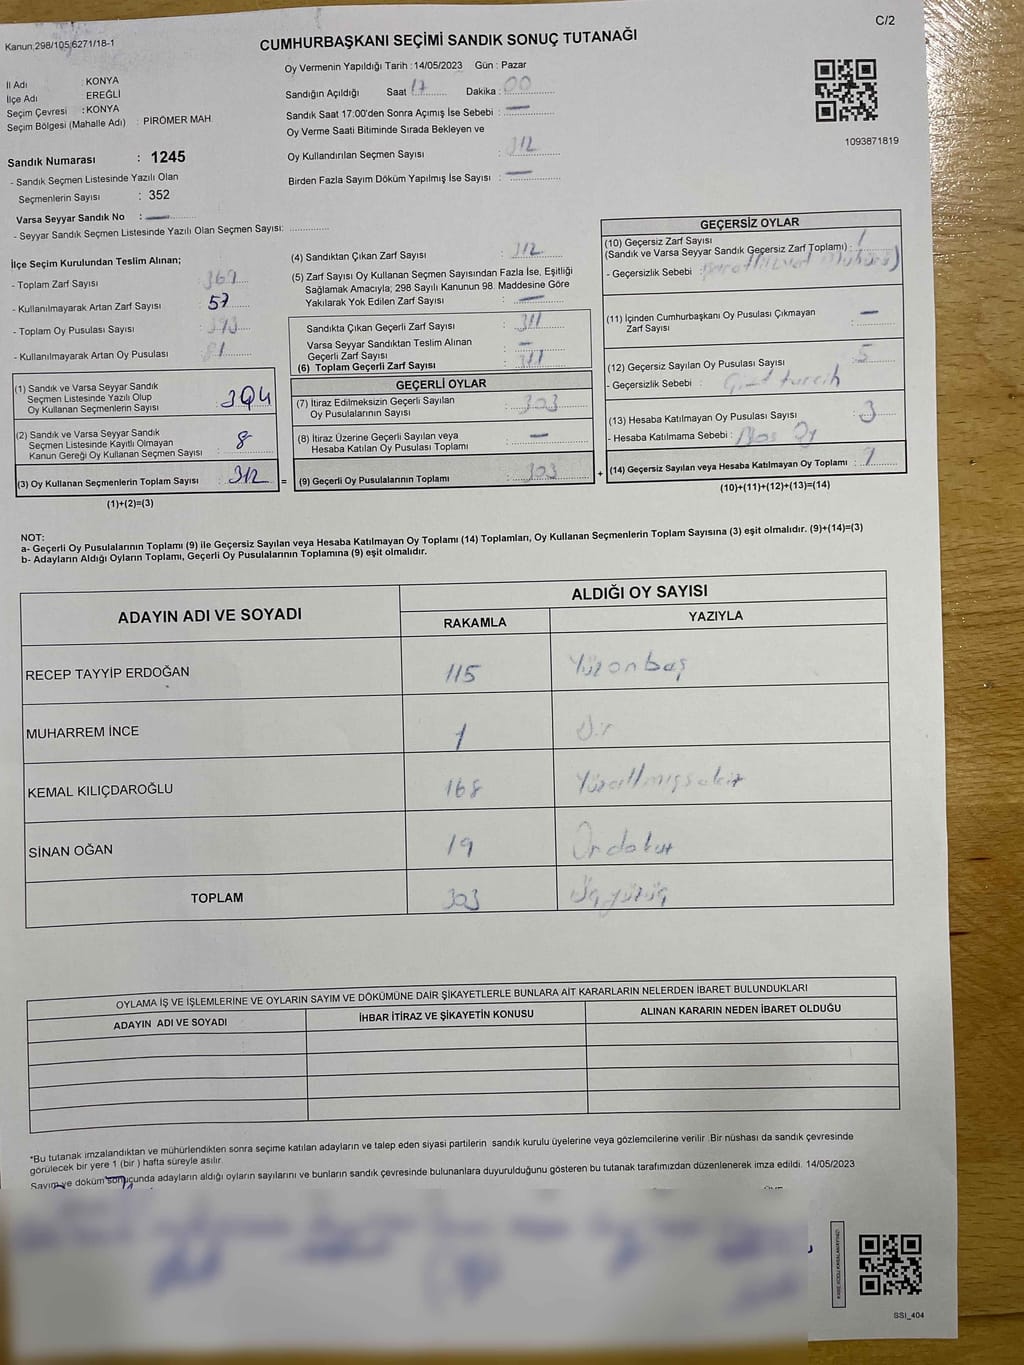 C/2
Kanun 298/105 6271/18-1
CUMHURBAŞKANI SEÇİMİ SANDIK SONUÇ TUTANAĞI
İl Adı : KONYA
İlçe Adı : EREĞLİ
Seçim Çevresi : KONYA
Seçim Bölgesi (Mahalle Adı) : PİRÖMER MAH.
Oy Vermenin Yapıldığı Tarih : 14/05/2023 Gün : Pazar
Sandığın Açıldığı Saat 17 Dakika : 00
Sandık Saat 17:00'den Sonra Açımış İse Sebebi : —
Oy Verme Saati Bitiminde Sırada Bekleyen ve
Oy Kullandırılan Seçmen Sayısı : 312
Birden Fazla Sayım Döküm Yapılmış İse Sayısı : —
1093871819
Sandık Numarası : 1245
- Sandık Seçmen Listesinde Yazılı Olan
Seçmenlerin Sayısı : 352
Varsa Seyyar Sandık No : —
- Seyyar Sandık Seçmen Listesinde Yazılı Olan Seçmen Sayısı:
İlçe Seçim Kurulundan Teslim Alınan;
- Toplam Zarf Sayısı : 369
- Kullanılmayarak Artan Zarf Sayısı : 57
- Toplam Oy Pusulası Sayısı : 393
- Kullanılmayarak Artan Oy Pusulası : 81
(1) Sandık ve Varsa Seyyar Sandık
Seçmen Listesinde Yazılı Olup
Oy Kullanan Seçmenlerin Sayısı : 304
(2) Sandık ve Varsa Seyyar Sandık
Seçmen Listesinde Kayıtlı Olmayan
Kanun Gereği Oy Kullanan Seçmen Sayısı : 8
(3) Oy Kullanan Seçmenlerin Toplam Sayısı : 312 =
(1)+(2)=(3)
(4) Sandıktan Çıkan Zarf Sayısı : 312
(5) Zarf Sayısı Oy Kullanan Seçmen Sayısından Fazla İse, Eşitliği
Sağlamak Amacıyla; 298 Sayılı Kanunun 98. Maddesine Göre
Yakılarak Yok Edilen Zarf Sayısı : —
Sandıkta Çıkan Geçerli Zarf Sayısı : 311
Varsa Seyyar Sandıktan Teslim Alınan
Geçerli Zarf Sayısı : —
(6) Toplam Geçerli Zarf Sayısı : 311
GEÇERLİ OYLAR
(7) İtiraz Edilmeksizin Geçerli Sayılan
Oy Pusulalarının Sayısı : 303
(8) İtiraz Üzerine Geçerli Sayılan veya
Hesaba Katılan Oy Pusulası Toplamı : —
(9) Geçerli Oy Pusulalarının Toplamı : 303 +
GEÇERSİZ OYLAR
(10) Geçersiz Zarf Sayısı
(Sandık ve Varsa Seyyar Sandık Geçersiz Zarf Toplamı) : 1
- Geçersizlik Sebebi :
(11) İçinden Cumhurbaşkanı Oy Pusulası Çıkmayan
Zarf Sayısı : —
(12) Geçersiz Sayılan Oy Pusulası Sayısı : 5
- Geçersizlik Sebebi : tercih
(13) Hesaba Katılmayan Oy Pusulası Sayısı : 3
- Hesaba Katılmama Sebebi : Boş Oy
(14) Geçersiz Sayılan veya Hesaba Katılmayan Oy Toplamı :
(10)+(11)+(12)+(13)=(14)
NOT:
a- Geçerli Oy Pusulalarının Toplamı (9) ile Geçersiz Sayılan veya Hesaba Katılmayan Oy Toplamı (14) Toplamları, Oy Kullanan Seçmenlerin Toplam Sayısına (3) eşit olmalıdır. (9)+(14)=(3)
b- Adayların Aldığı Oyların Toplamı, Geçerli Oy Pusulalarının Toplamına (9) eşit olmalıdır.
ADAYIN ADI VE SOYADI ALDIĞI OY SAYISI
RAKAMLA YAZIYLA
RECEP TAYYİP ERDOĞAN 115 Yüzonbeş
MUHARREM İNCE 1 Bir
KEMAL KILIÇDAROĞLU 168 Yüzaltmışsekiz
SİNAN OĞAN 19 Ondokuz
TOPLAM 303 Üçyüzüç
OYLAMA İŞ VE İŞLEMLERİNE VE OYLARIN SAYIM VE DÖKÜMÜNE DAİR ŞİKAYETLERLE BUNLARA AİT KARARLARIN NELERDEN İBARET BULUNDUKLARI
ADAYIN ADI VE SOYADI İHBAR İTİRAZ VE ŞİKAYETİN KONUSU ALINAN KARARIN NEDEN İBARET OLDUĞU
*Bu tutanak imzalandıktan ve mühürlendikten sonra seçime katılan adayların ve talep eden siyasi partilerin sandık kurulu üyelerine veya gözlemcilerine verilir .Bir nüshası da sandık çevresinde
görülecek bir yere 1 (bir ) hafta süreyle asılır.
Sayım ve döküm sonucunda adayların aldığı oyların sayılarını ve bunların sandık çevresinde bulunanlara duyurulduğunu gösteren bu tutanak tarafımızdan düzenlenerek imza edildi. 14/05/2023
SSI_404